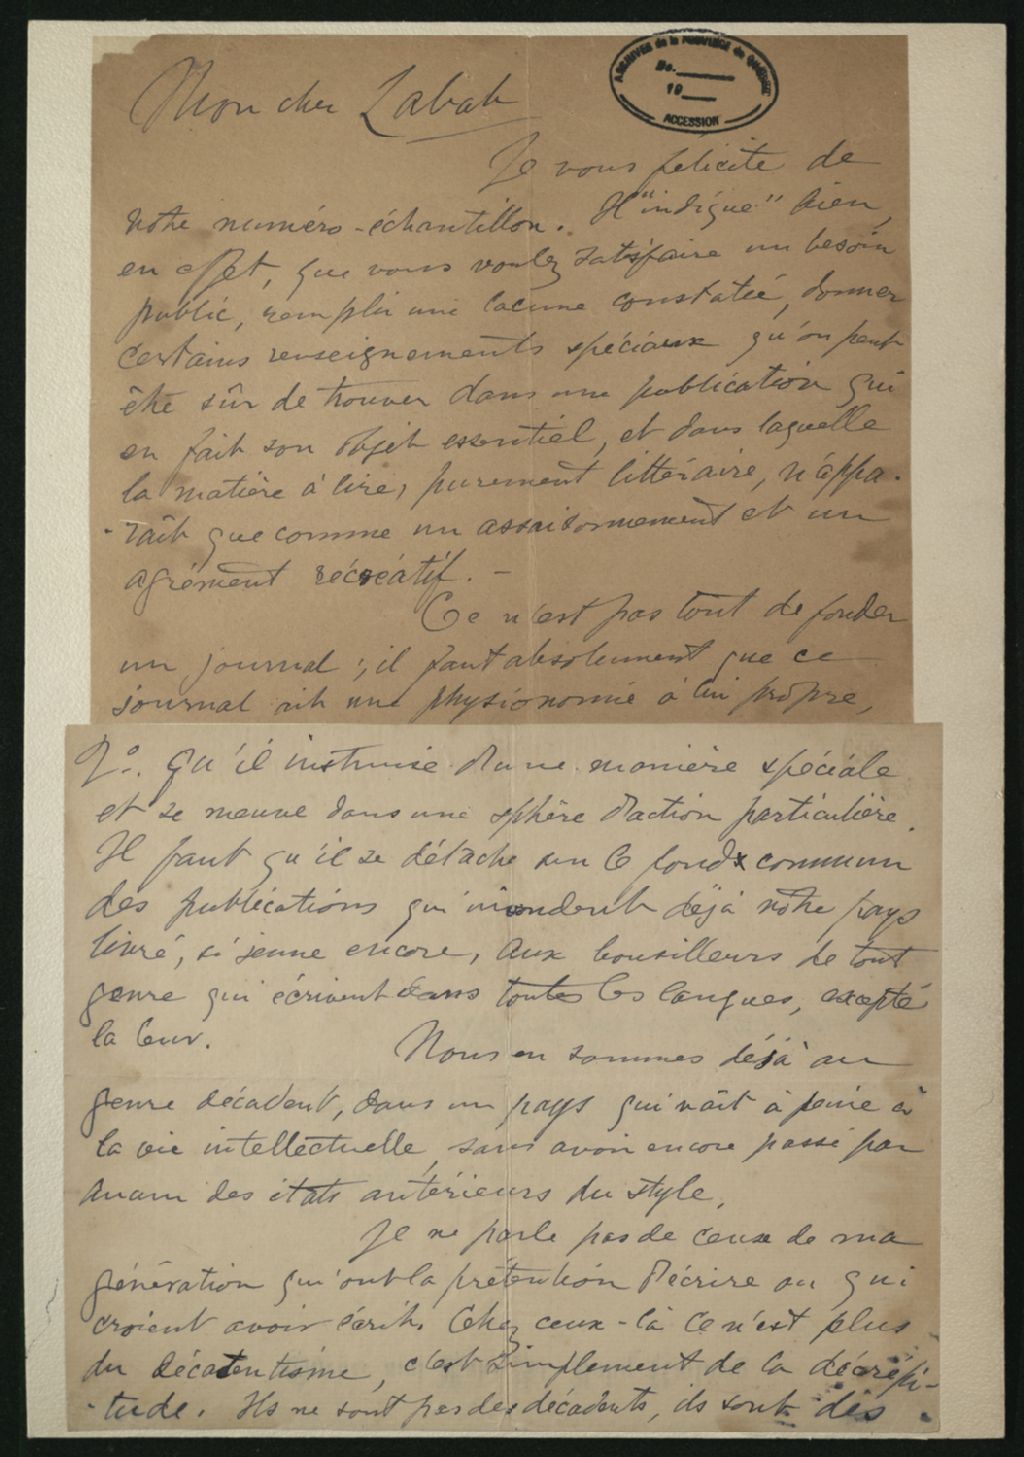 Mon cher Labat
ARCHIVES de la PROVINCE de QUÉBEC
No.
19
ACCESSION
Je vous félicite de
votre numéro-échantillon. Il "indique" bien,
en effet, que vous voulez satisfaire un besoin
public, remplir une lacune constatée, donner
certains renseignements spéciaux qu'on peut
être sûr de trouver dans une publication qui
en fait son objet essentiel, et dans laquelle
la matière à lire, purement littéraire, n'appa-
-raît que comme un assaisonnement et un
agrément récréatif. -
Ce n'est pas tout de fonder
un journal ; il faut absolument que ce
journal ait une physionomie à lui propre,
2°. qu'il instruise d'une manière spéciale
et se meuve dans une sphère d'action particulière.
Il faut qu'il se détache sur le fond commun
des publications qui inondent déjà notre pays
livré, si jeune encore, aux bousilleurs de tout
genre qui écrivent dans toutes les langues, excepté
la leur.
Nous en sommes déjà au
genre décadent, dans un pays qui naît à peine à
la vie intellectuelle, sans avoir encore passé par
aucun des états antérieurs du style.
Je ne parle pas de ceux de ma
génération qui ont la prétention d'écrire ou qui
croient avoir écrit. Chez ceux-là ce n'est plus
du décadentisme, c'est simplement de la décrépi-
-tude. Ils ne sont pas des décadents, ils sont des